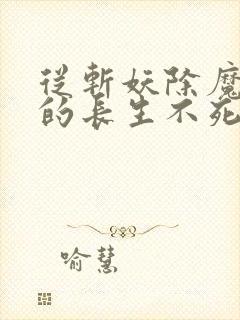 從斬妖除魔
的長生不死
喻慧